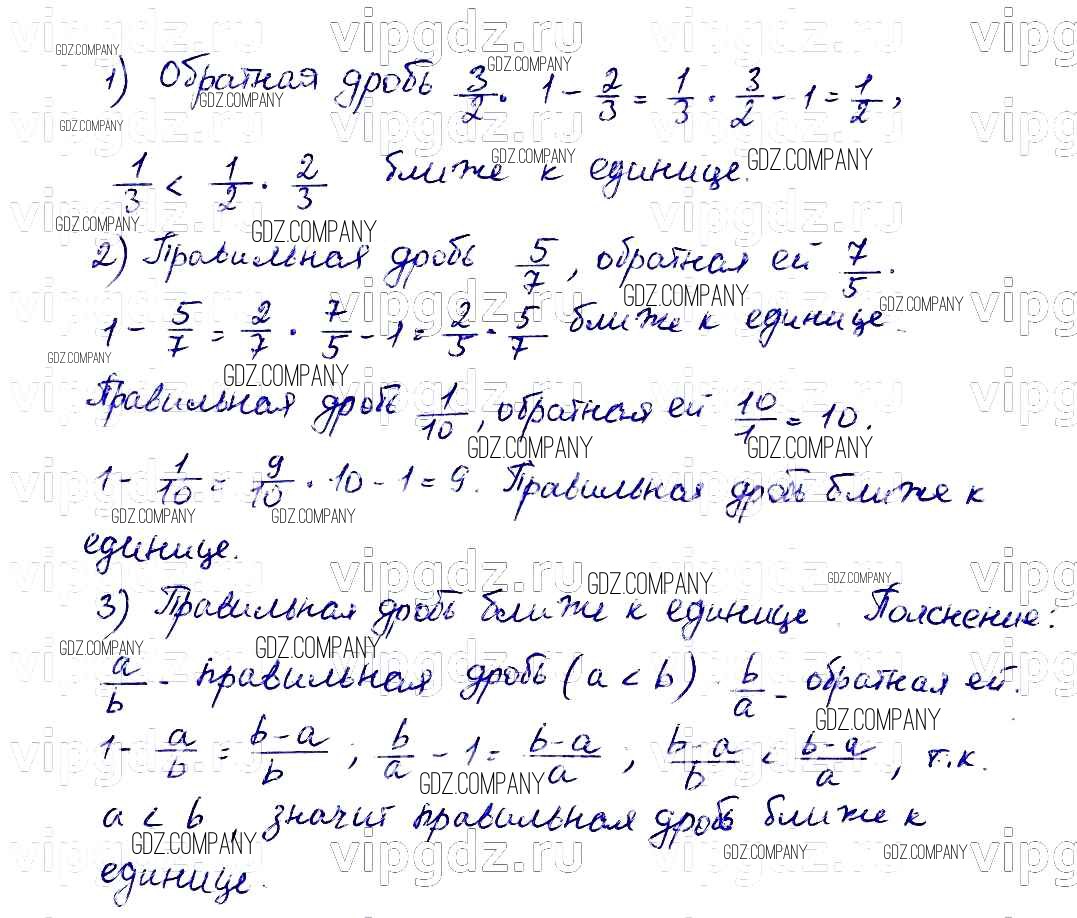 1) Обратная дробь 3/2. 1 - 2/3 = 1/3. 3/2 - 1 = 1/2,
1/3 < 1/2. 2/3 ближе к единице.
2) Правильная дробь 5/7, обратная ей 7/5.
1 - 5/7 = 2/7. 7/5 - 1 = 2/5. 5/7 ближе к единице.
Правильная дробь 1/10, обратная ей 10/1 = 10.
1 - 1/10 = 9/10. 10 - 1 = 9. Правильная дробь ближе к
единице.
3) Правильная дробь ближе к единице. Пояснение:
a/b - правильная дробь (a < b). b/a - обратная ей.
1 - a/b = b-a/b; b/a - 1 = b-a/a; b-a/b < b-a/a, т.к.
a < b, значит правильная дробь ближе к
единице.
vipgdz.ru
GDZ.COMPANY